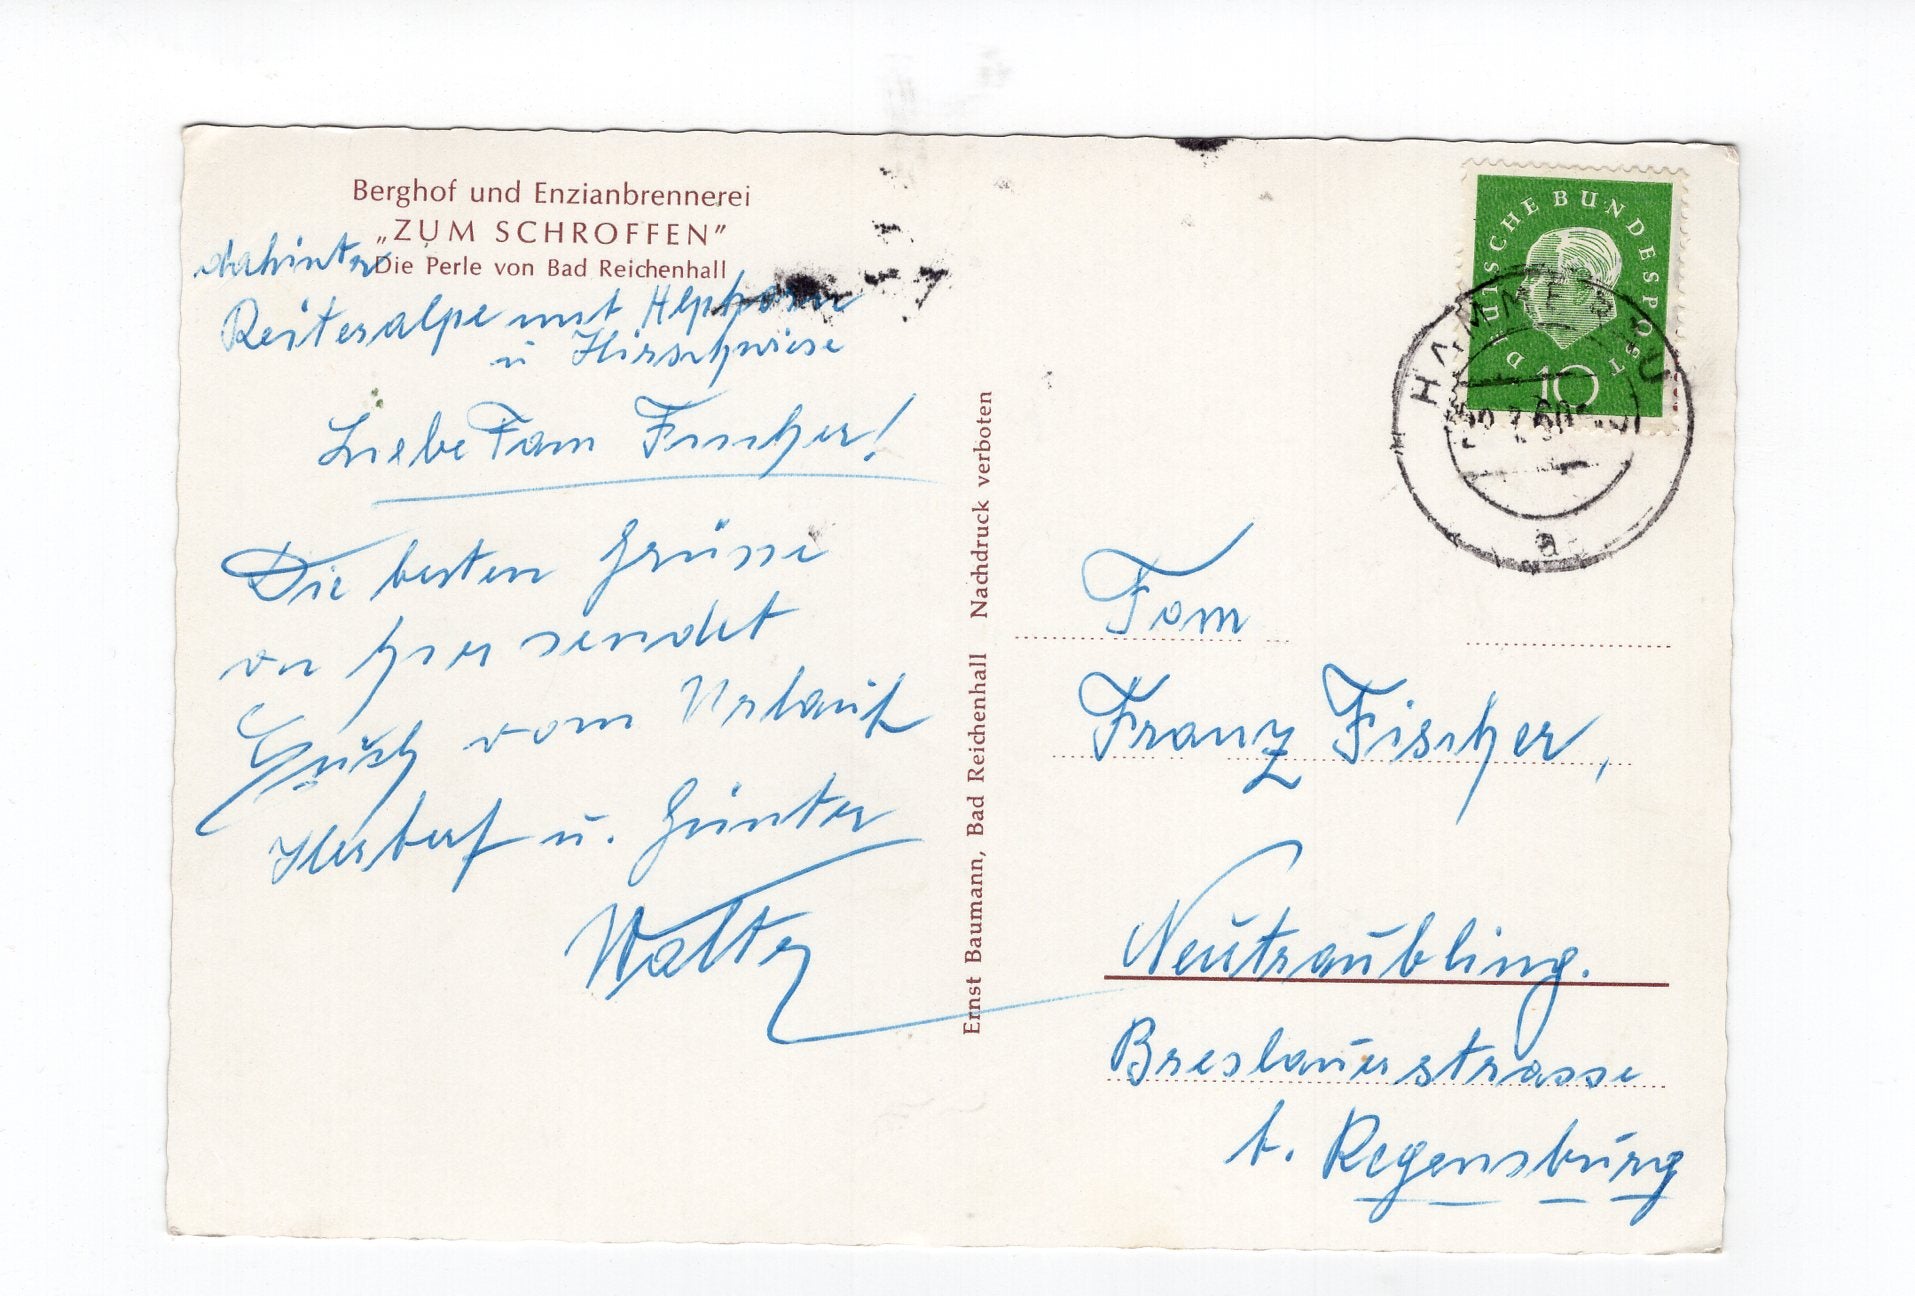 Berghof und Enzianbrennerei
„ZUM SCHROFFEN”
Die Perle von Bad Reichenhall
dahinter
Reiteralpe mit
u Hirschwiese
Liebe Fam Fischer!
Die besten Grüsse
von hier sendet
Euch vom Urlaub
Herbert u. Günter
Walter
Ernst Baumann, Bad Reichenhall Nachdruck verboten
DEUTSCHE BUNDESPOST
10
HAMMERAU
60
a
Fam
Franz Fischer,
Neutraubling.
Breslauerstrasse
b. Regensburg